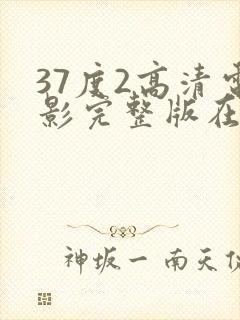 37度2高清电
影完整版在
神坂一 南天佐